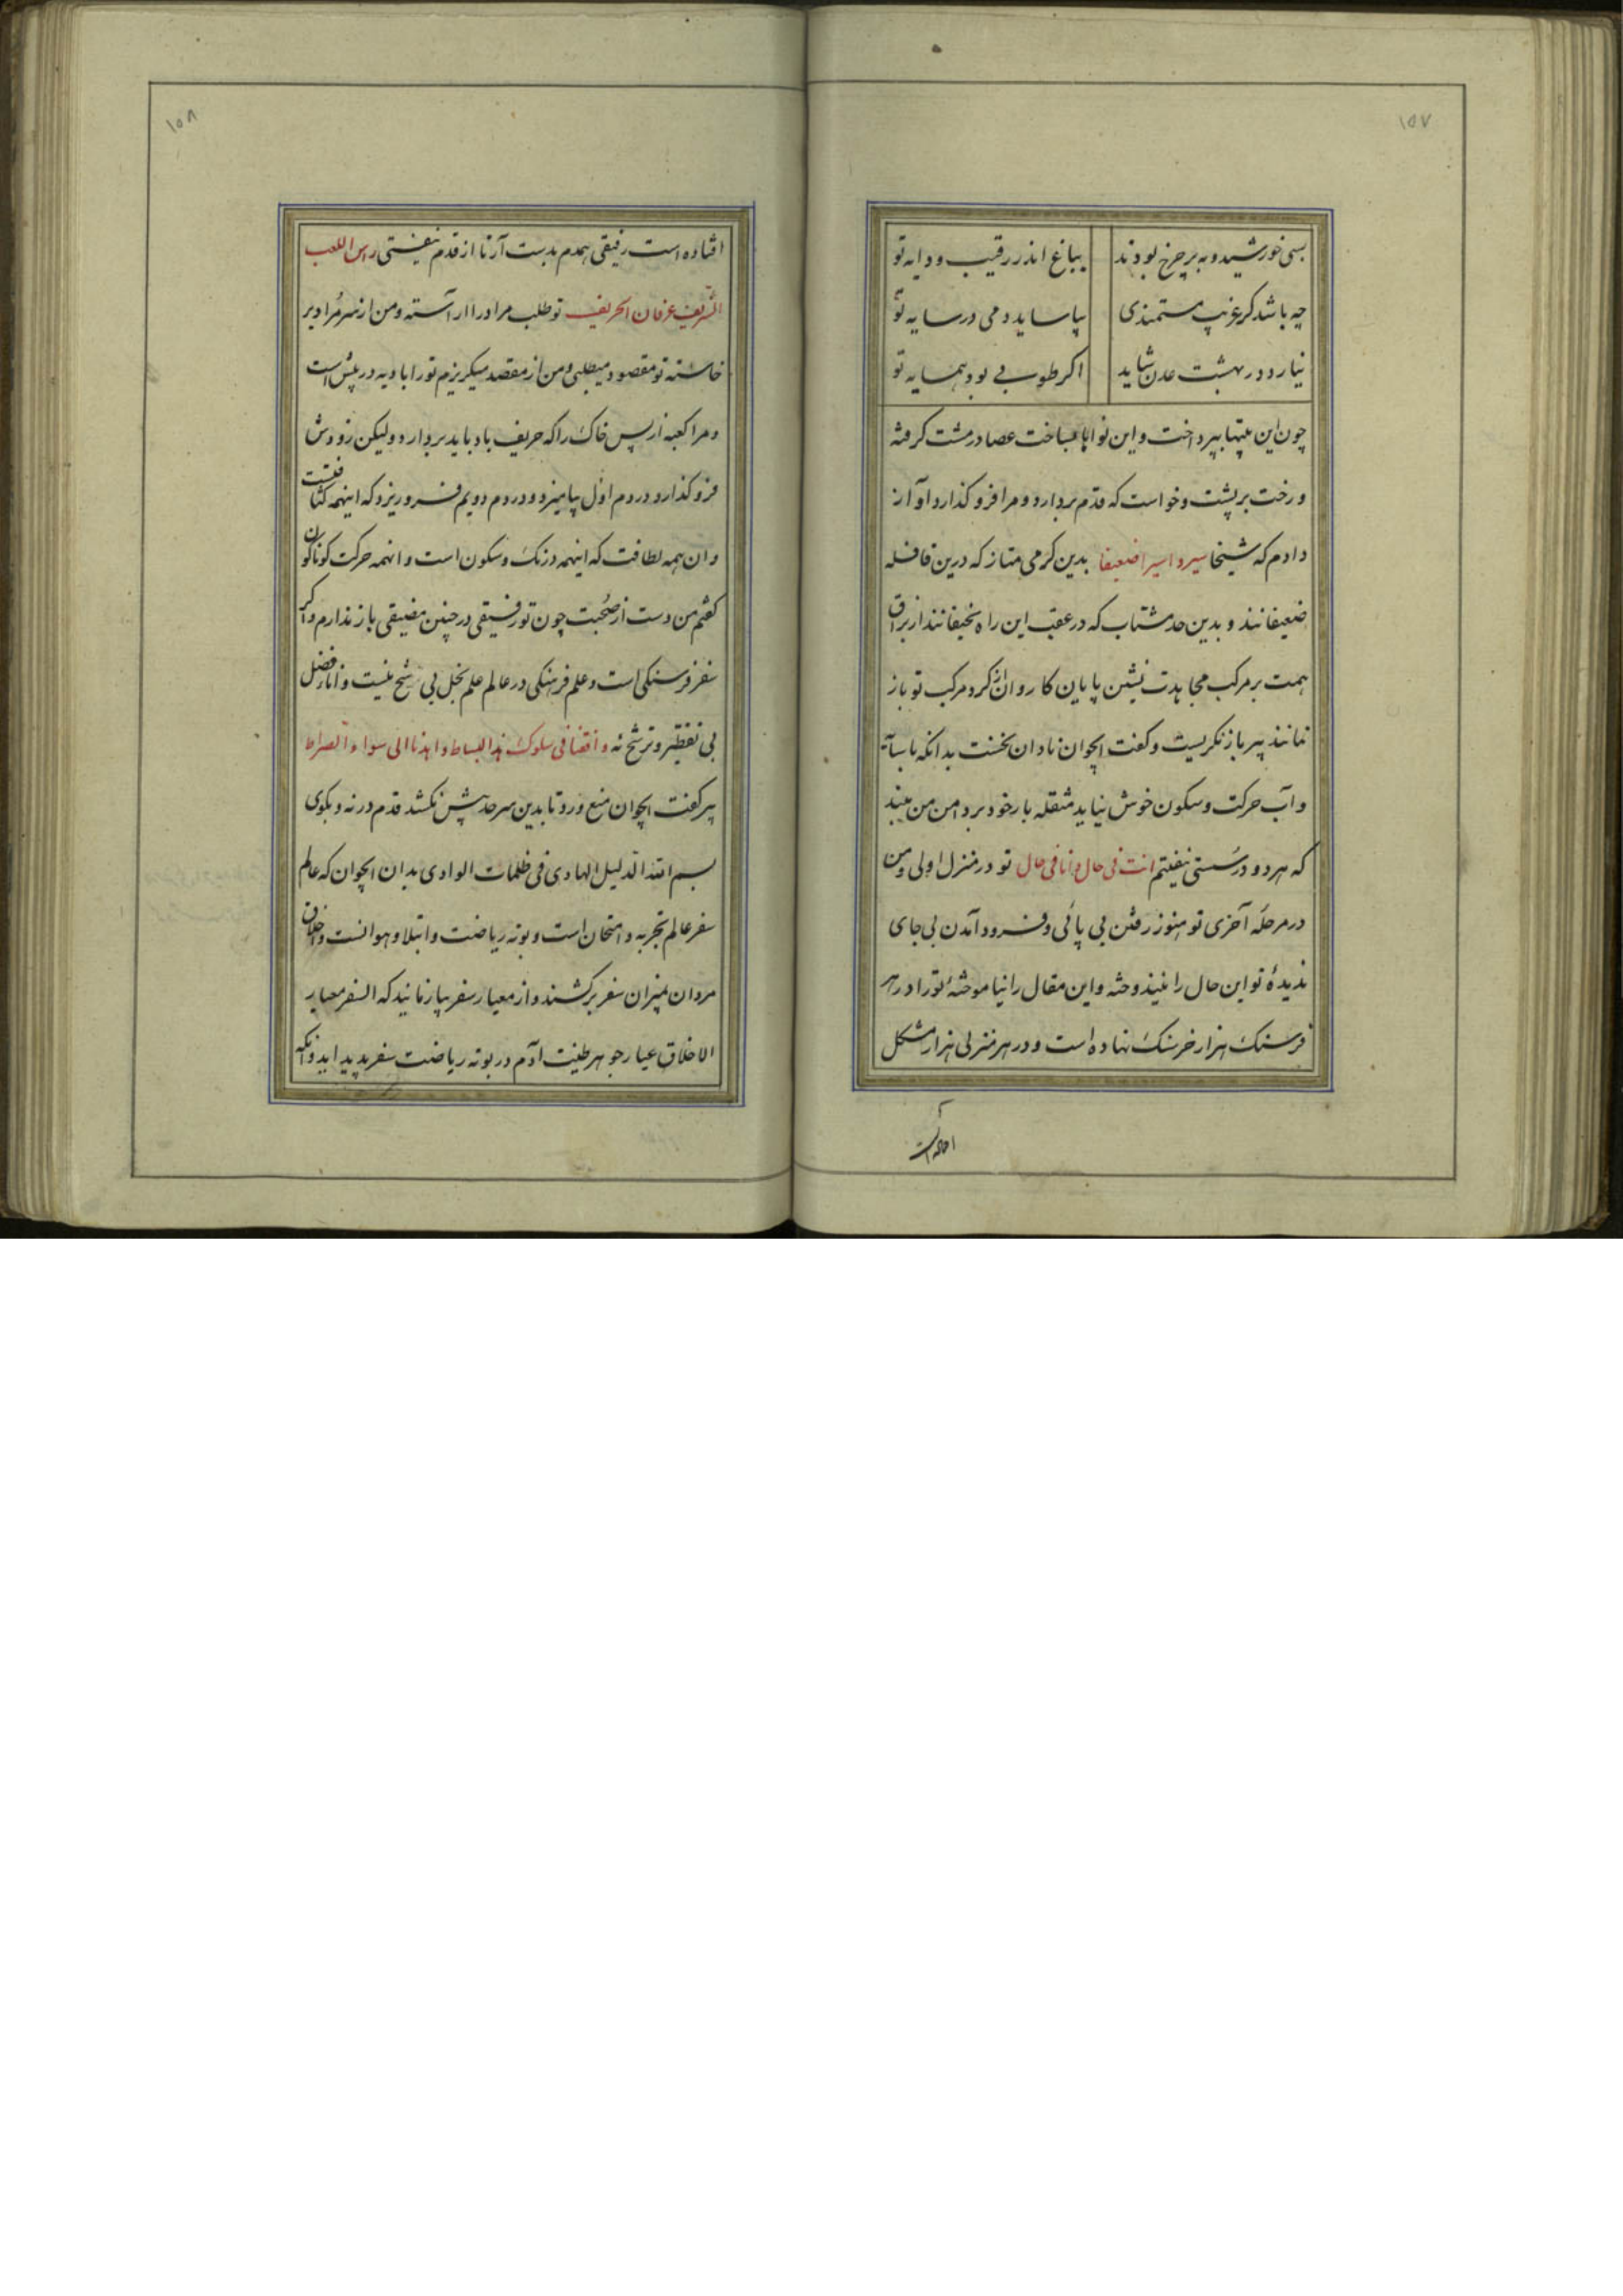 ۱۵۷
بسی خورشید و مه بر چرخ بودند بباغ اندر رقیب و دایه تو
چه باشد گر غریب مستمندی بیاساید دمی در سایه تو
نیارد در بهشت عدن شاید اکر طوبی بود همسایه تو
چون این بیتها بپرداخت و این نواها بساخت عصا در مشت کرفته
و رخت بر پشت و خواست که قدم بردارد و مرا فرو کذارد آواز
دادم که شیخا سیروا سیر اضعفا بدین کرمی متاز که درین قافله
ضعیفانند و بدین حد مشتاب که در عقب این راه نحیفانند از براق
همت بر مرکب مجاهدت نشین پایان کاروان از کرد مرکب تو باز
نمانند پیر باز نکریست و کفت ایجوان نادان نخست بدانکه با سآیه
و آب حرکت و سکون خوش نیاید مثقله بار خود بر دامن من مبند
که هر دو در سستی نیفتیم انت فی حال و انا فی حال تو در منزل اولی و من
در مرحله آخری تو هنوز رفتن بی پائی و فرود آمدن بی جای
ندیدهٔ تو این حال را نیندوخته و این مقال را نیاموختهٔ تو را در هر
فرسنک هزار خرسنک نهاده است و در هر منزلی هزار مشکل
۱۵۸
افتاده است رفیقی همدم بدست آر تا از قدم نیفتی راس اللعب
الشریف عرفان الحریف تو طلب مراد را آراسته و من از سر مراد بر
خاسته تو مقصود میطلبی و من از مقصد میکریزم تو را بادیه در پیش است
و مرا کعبه از پس خاک را که حریف باد باید بردارد ولیکن زودش
فرو کذارد در دم اول بیامیزد و در دم دویم فرو ریزد که اینهمه کثافتست
و ان همه لطافت که اینهمه درنک و سکون است و انهمه حرکت کوناکون
کفتم من دست از صحبت چون تو رفیقی در چنین مضیقی باز ندارم و اکر
سفر فرسنکی است و علم فرهنکی در عالم علم بخل بی شح نیست و انا رفضل
بی تفطیر و ترشح نه و اقضا فی سلوک هذا البساط و اهدنا الی سواء الصراط
پیر کفت ایجوان منع و رد تا بدین سرحد پیش نکشد قدم در نه و بکوی
بسم الله الدلیل الهادی فی ظلمات الوادی بدان ایجوان که عالم
سفر عالم تجربه و امتحان است و بوته ریاضت و ابتلا و هوانست و اخلاق
مردان بمیزان سفر برکشند و از معیار سفر بیازمایند که السفر معیار
الاخلاق عیار جوهر طینت آدم در بوته ریاضت سفر پدید اید و آنکه